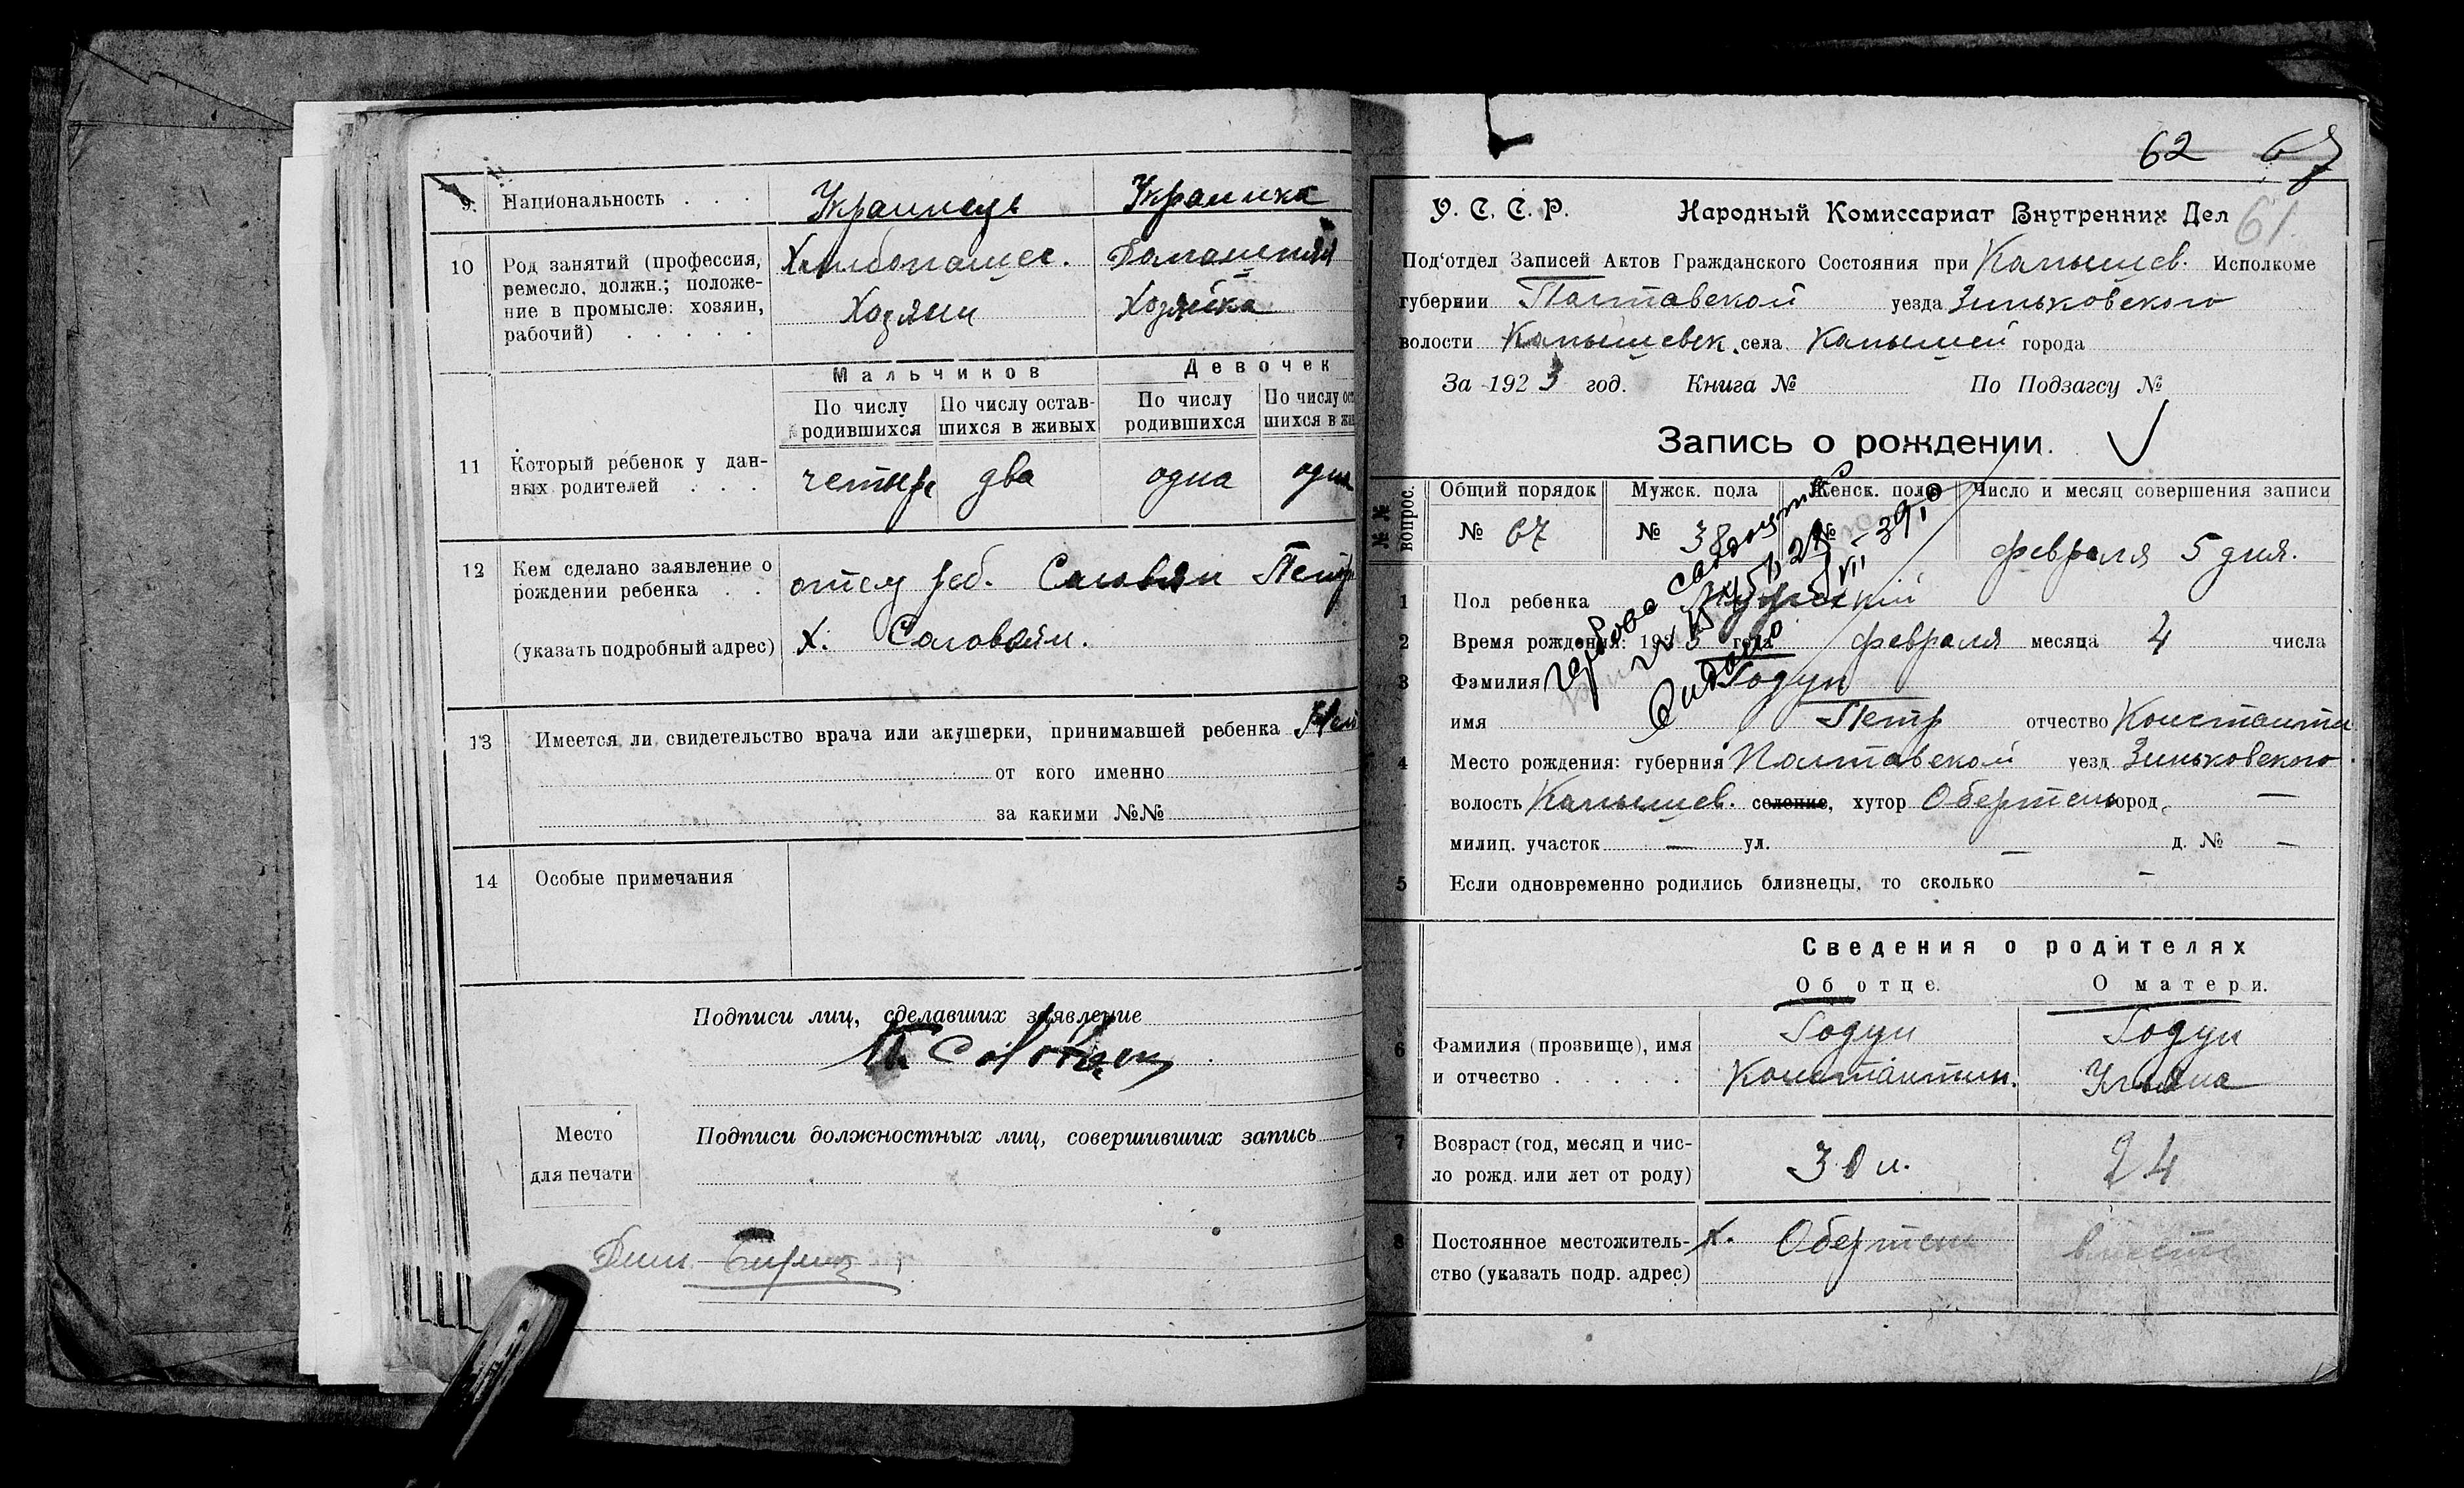 9. Национальность . . . Украинець Украинка
10 Род занятий (профессия, ремесло, должн.; положе-
ние в промысле: хозяин,
рабочий) . . . . .
Хлибопашес. Домашняя
Хозяин Хозяйка
Мальчиков Девочек
По числу родившихся По числу остав-шихся в живых По числу родившихся По числу ост шихся в жи
11 Который ребенок у дан-
ных родителей . . .
четыре два одна одна
12 Кем сделано заявление о
рождении ребенка . .
отец реб. Саловян Петр
(указать подробный адрес) х. Саловяи.
13 Имеется ли свидетельство врача или акушерки, принимавшей ребенка Нет
от кого именно
за какими №№
14 Особые примечания
Подписи лиц, сделавших заявление
Место
для печати
Подписи должностных лиц, совершивших запись
62 67
61.
У. С. С. Р. Народный Комиссариат Внутренних Дел
Под'отдел Записей Актов Гражданского Состояния при Камышев. Исполкоме
губернии Полтавской уезда Зиньковского
волости Камышевск. села Камышей города
За 1923 год. Книга № По Подзагсу №
Запись о рождении.
№№ вопрос.
Общий порядок Мужск. пола Женск. пола Число и месяц совершения записи
№ 67 № 38 № февраля 5 дня.
1 Пол ребенка Мужский
2 Время рождения: 1923 года февраля месяца 4 числа
3 Фамилия Годун
имя Петр отчество Константин
4 Место рождения: губерния Полтавской уезд Зиньковского
волость Камышев. селение, хутор Обертень город —
милиц. участок — ул. — д. № —
5 Если одновременно родились близнецы, то сколько -
Сведения о родителях
Об отце. О матери.
6 Фамилия (прозвище), имя
и отчество . . . . .
Годун Годун
Константин. Ульяна
7 Возраст (год, месяц и чис-
ло рожд. или лет от роду)
30 л. 24
8 Постоянное местожитель-
ство (указать подр. адрес)
х. Обертень вместе